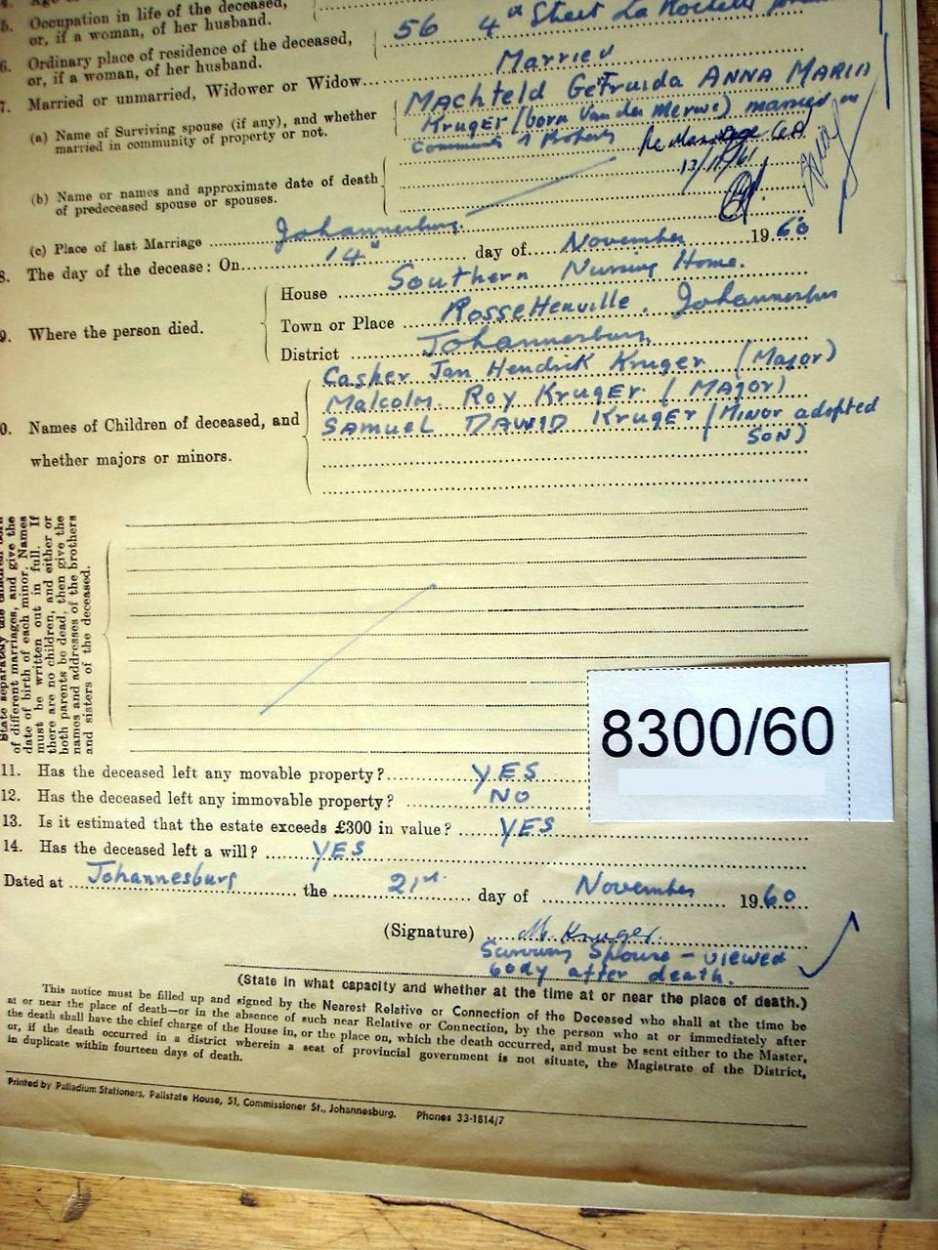 5. Occupation in life of the deceased,
or, if a woman, of her husband.
6. Ordinary place of residence of the deceased,
or, if a woman, of her husband.
56 4th Street La Rochelle
7. Married or unmarried, Widower or Widow... Married
(a) Name of Surviving spouse (if any), and whether
married in community of property or not.
Machteld Getruida ANNA MARIA
Kruger (born Van der Merwe) married in
Community of Property
Re Marriage Cert
13/11/61
(b) Name or names and approximate date of death
of predeceased spouse or spouses.
(c) Place of last Marriage ... Johannesburg.
8. The day of the decease: On... 14th day of... November 1960
9. Where the person died.
House ... Southern Nursing Home.
Town or Place ... Rossettenville, Johannesburg
District ... Johannesburg
10. Names of Children of deceased, and
whether majors or minors.
Casper Jan Hendrik Kruger (Major)
Malcolm Roy Kruger (MAJOR)
SAMUEL DAWID Kruger (Minor adopted
SON)
State separately the children born
of different marriages, and give the
date of birth of each minor. Names
must be written out in full. If
there are no children, and either or
both parents be dead, then give the
names and addresses of the brothers
and sisters of the deceased.
8300/60
11. Has the deceased left any movable property?... YES
12. Has the deceased left any immovable property? ... NO
13. Is it estimated that the estate exceeds £300 in value? ... YES
14. Has the deceased left a will? ... YES
Dated at ... Johannesburg ... the ... 21st ... day of ... November ... 1960
(Signature) ... M. Kruger.
Surviving Spouse - viewed
body after death.
(State in what capacity and whether at the time at or near the place of death.)
This notice must be filled up and signed by the Nearest Relative or Connection of the Deceased who shall at the time be
at or near the place of death—or in the absence of such near Relative or Connection, by the person who at or immediately after
the death shall have the chief charge of the House in, or the place on, which the death occurred, and must be sent either to the Master,
or, if the death occurred in a district wherein a seat of provincial government is not situate, the Magistrate of the District,
in duplicate within fourteen days of death.
Printed by Palladium Stationers, Pallstate House, 51, Commissioner St., Johannesburg. Phones 33-1814/7